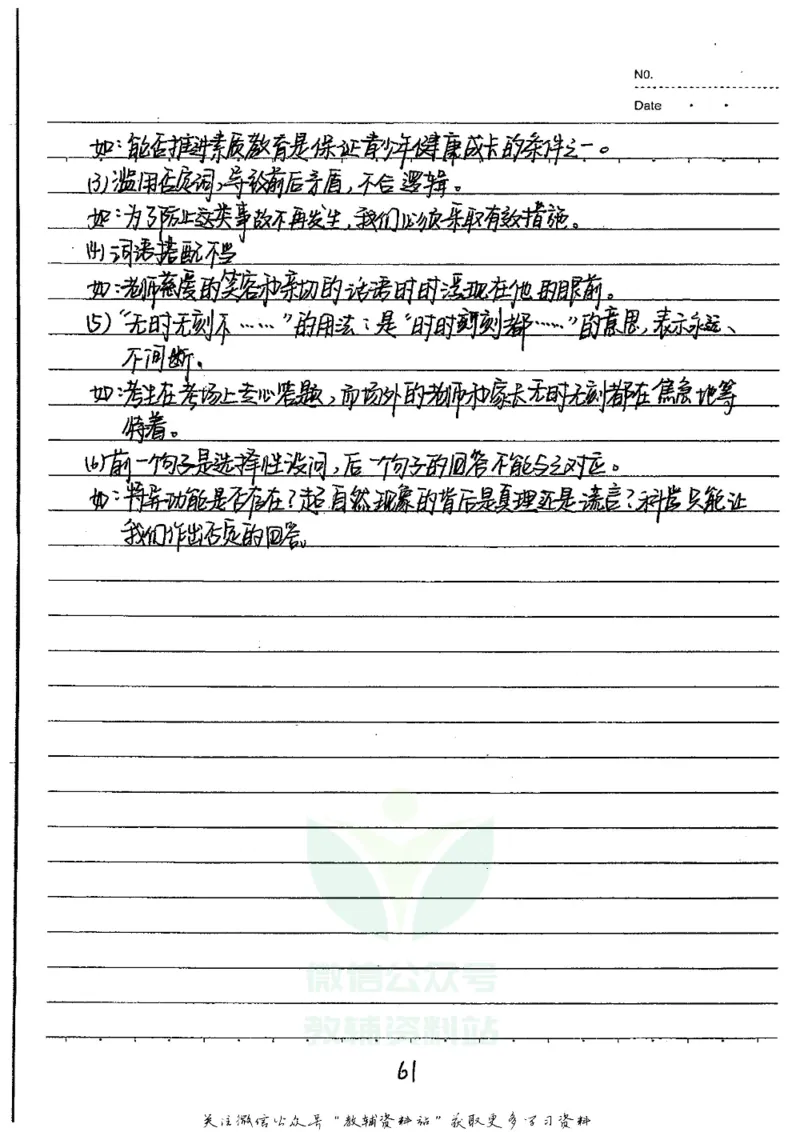 No.
Date
如：能否推进素质教育是保证青少年健康成长的条件之一。
(3)滥用否定词，导致前后矛盾，不合逻辑。
如：为了防止这类事故不再发生，我们必须采取有效措施。
(4)词语搭配不当
如：老师慈爱的笑容和亲切的话语时时浮现在他的眼前。
(5)“无时无刻不……”的用法：是“时时刻刻都……”的意思，表示永远、
不间断。
如：考生在考场上专心答题，而场外的老师和家长无时无刻都在焦急地等
待着。
(6)前一个句子是选择性设问，后一个句子的回答不能与之对应。
如：特异功能是否存在？超自然现象的背后是真理还是谎言？科学只能让
我们作出否定的回答。
微信公众号
教辅资料站
61
关注微信公众号“教辅资料站”获取更多学习资料